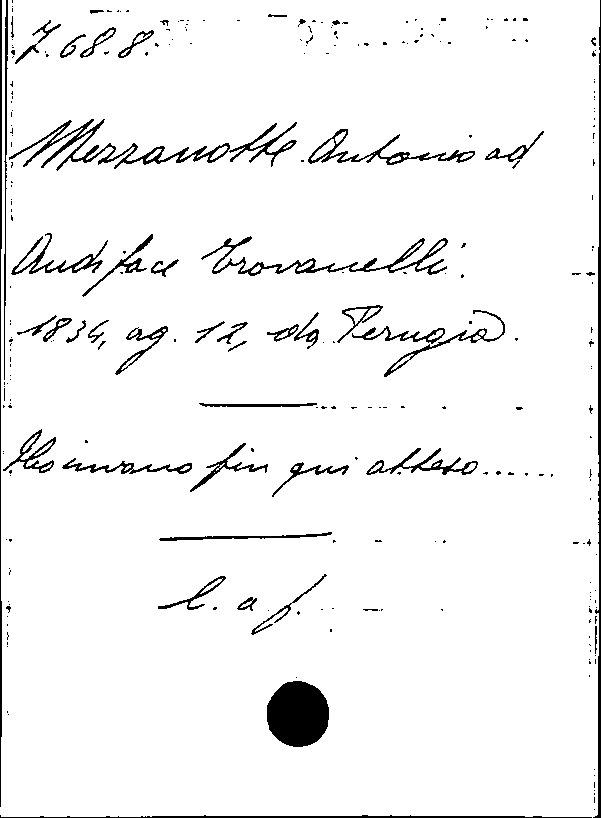 7.68.8.
Mezzanotte Antonio ad
Audiface Trovanelli.
1834, ag. 12, da Perugia.
Ho invano fin qui atteso......
l. a f.